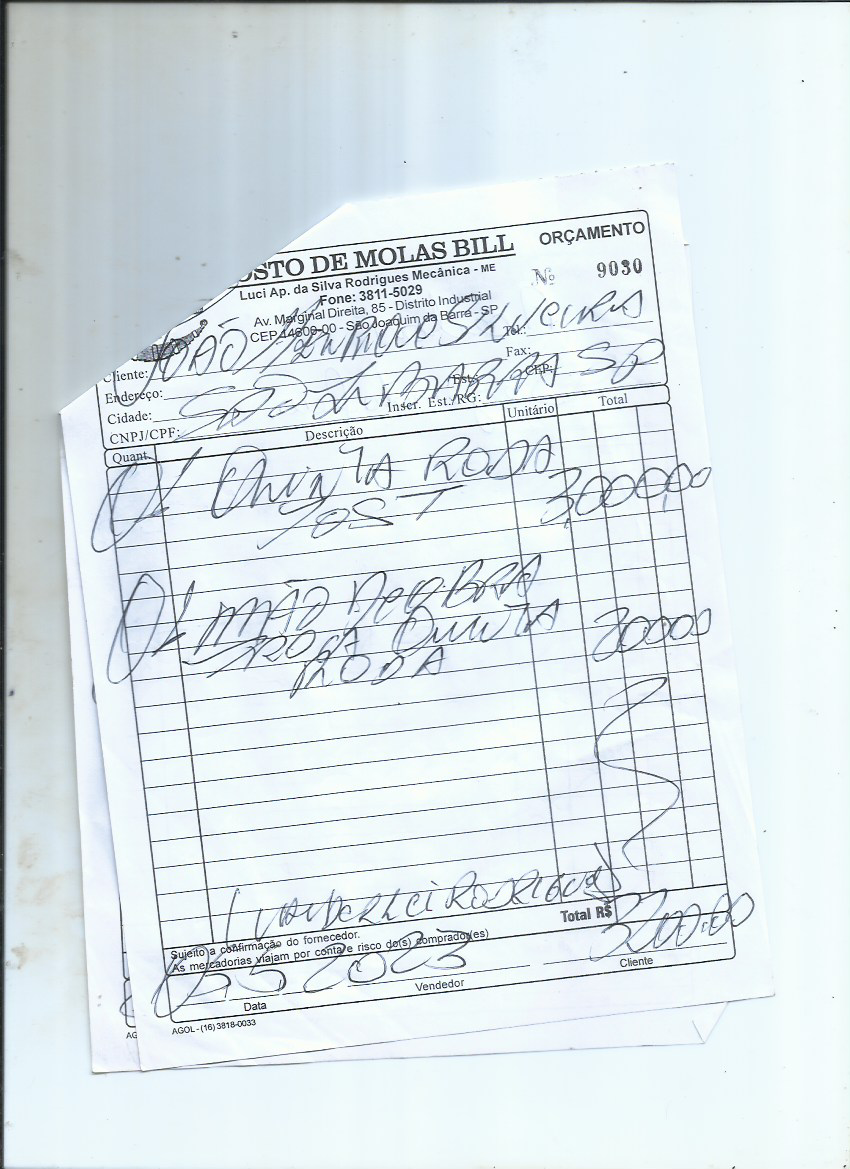 OSTO DE MOLAS BILL
ORÇAMENTO
Luci Ap. da Silva Rodrigues Mecânica - ME
Nº 9030
Fone: 3811-5029
Av. Marginal Direita, 85 - Distrito Industrial
CEP 14600-00 - São Joaquim da Barra - SP
Tel.:
Cliente: JOÃO
Fax:
Endereço:
Est.: CEP:
Cidade: SÃO J. BARRA SP
CNPJ/CPF: Inscr. Est./RG:
Quant. Descrição Unitário Total
01 QUINTA RODA
JOST 3,000,00
01 MÃO DE OBRA
TROCA QUINTA
RODA
VANDERLEI RODRIGUES
Total R$
Sujeito a confirmação do fornecedor.
As mercadorias viajam por conta e risco do(s) comprador(es)
5 2023
Data Vendedor Cliente
AGOL - (16) 3818-0033
AG